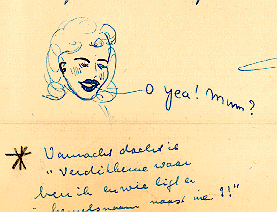 O yea! Mum?
* Vannacht dacht ik
" Verdikkeme waar
ben ik en wie ligt er
naast me ?!"